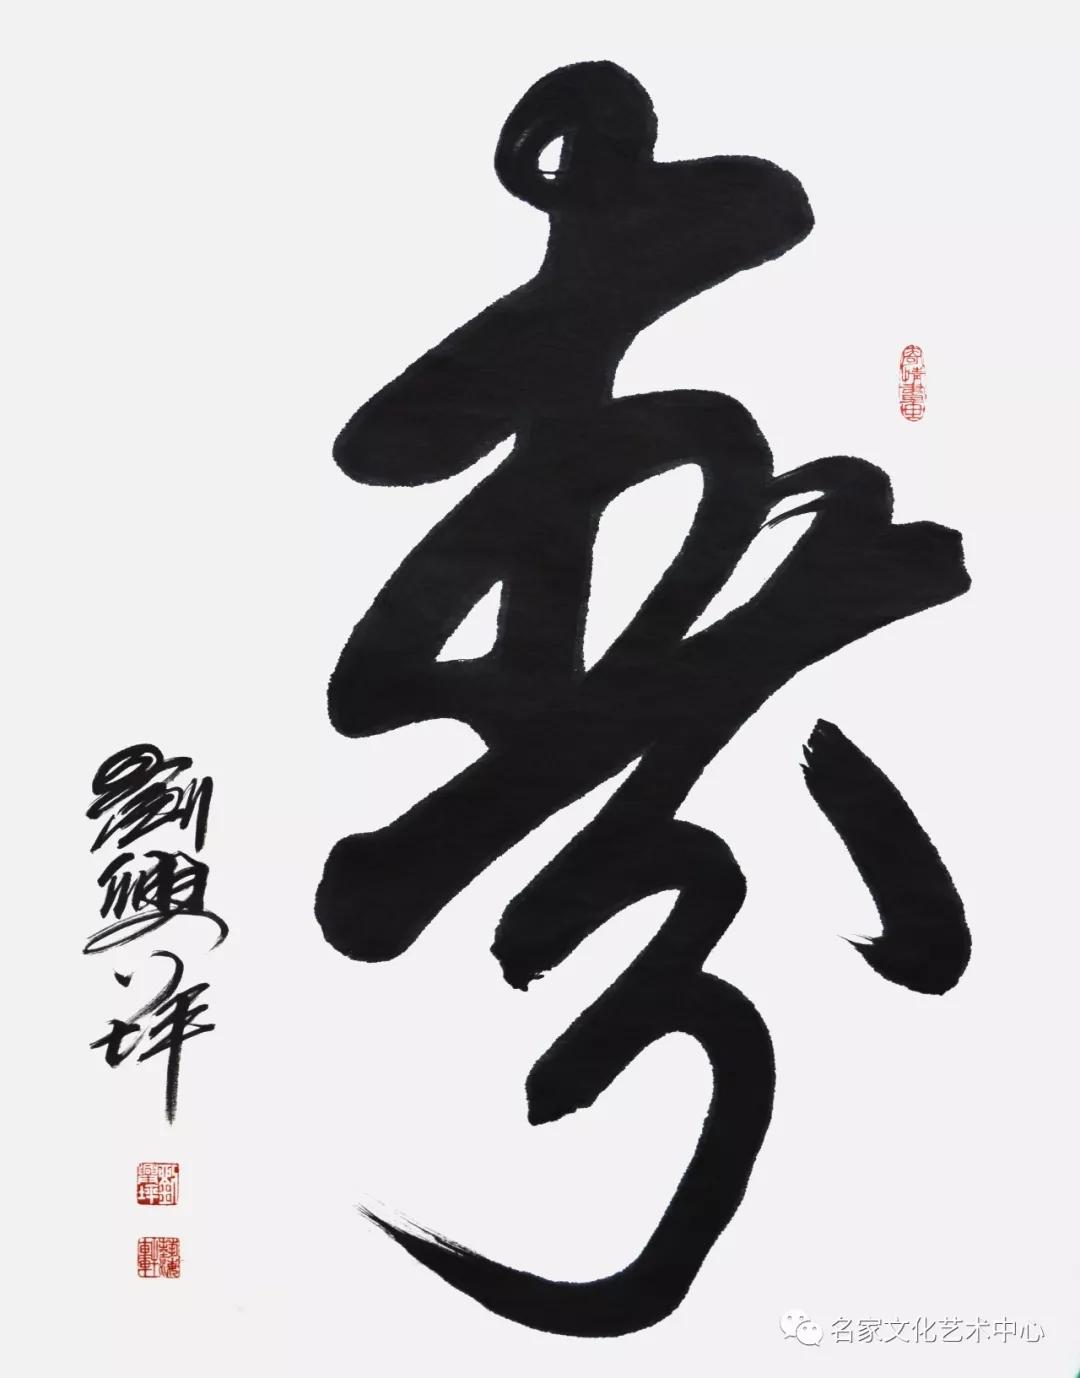 壽
劉興坪
名家文化艺术中心